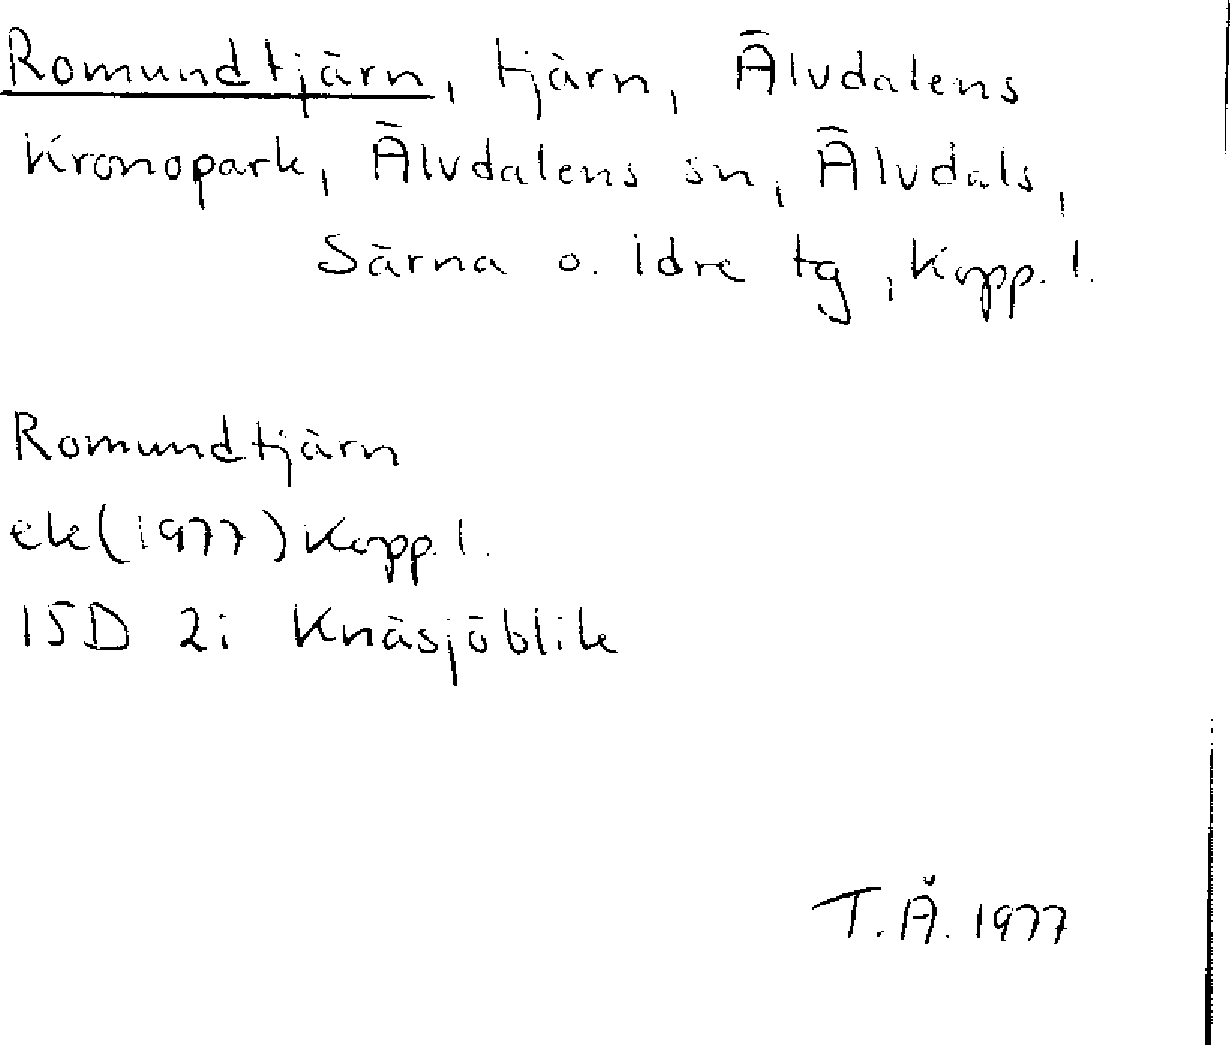 Romundtjärn, tjärn, Älvdalens
Kronopark, Älvdalens sn, Älvdals,
Särna o. Idre tg, Kopp. l.
Romundtjärn
ek (1977) Kopp. l.
15D 2i Knäsjöblik
T. Å. 1977